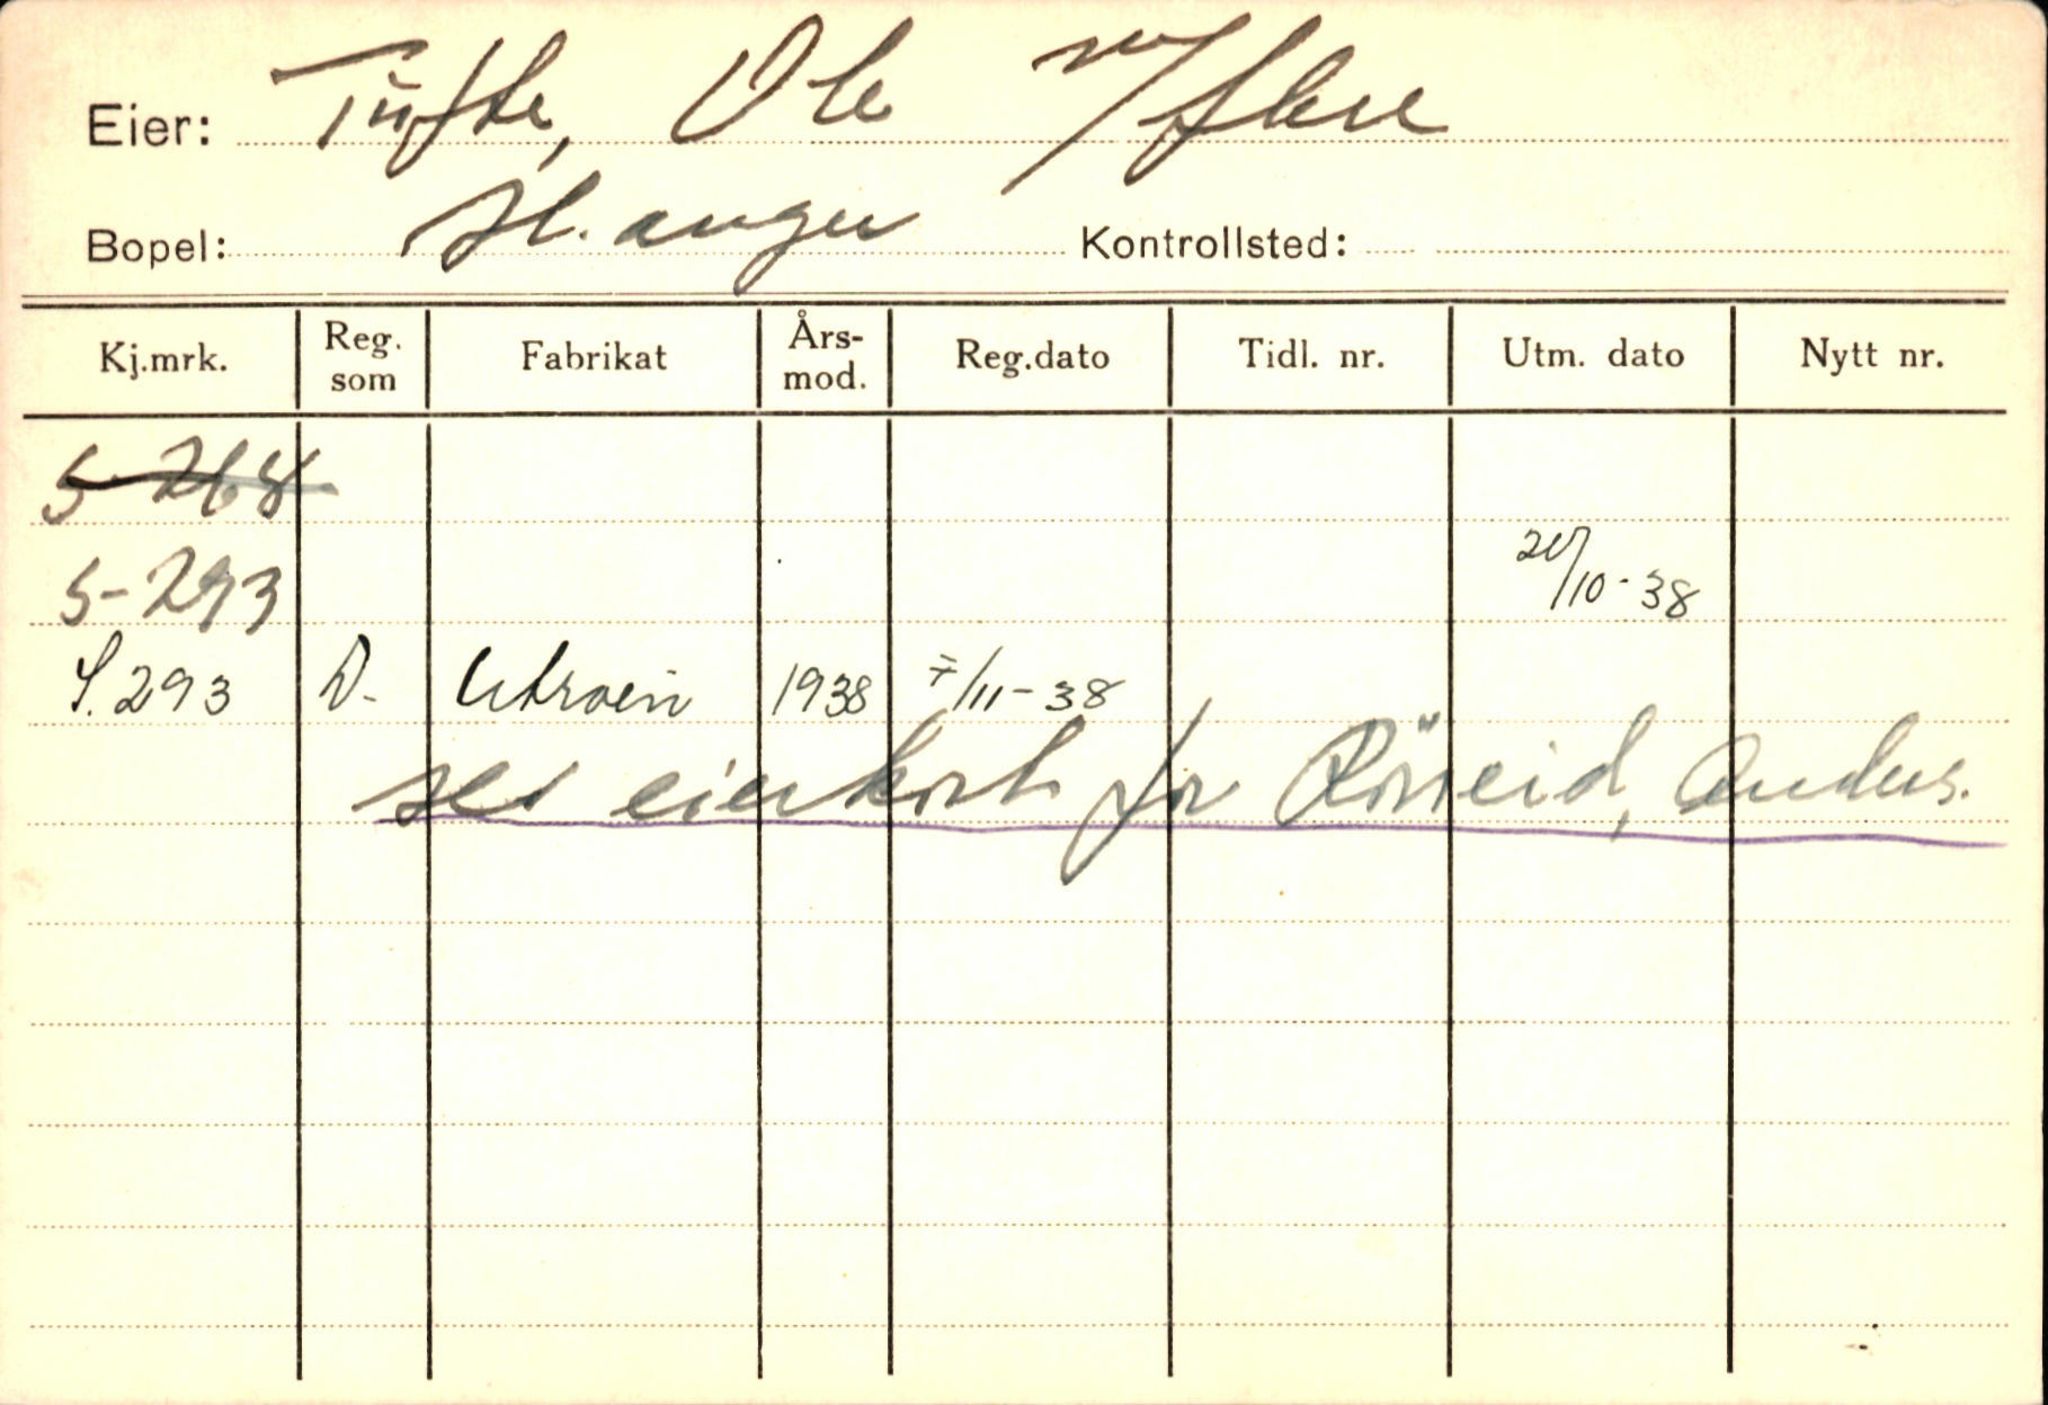 Eier: Tufte, Ole m/flere
Bopel: H. anger Kontrollsted:
Kj.mrk. Reg. som Fabrikat Års-mod. Reg.dato Tidl. nr. Utm. dato Nytt nr.
S-268
S-293 20/10-38
S. 293 D- Citroen 1938 7/11-38
ses eierkort for Röneid, Anders.